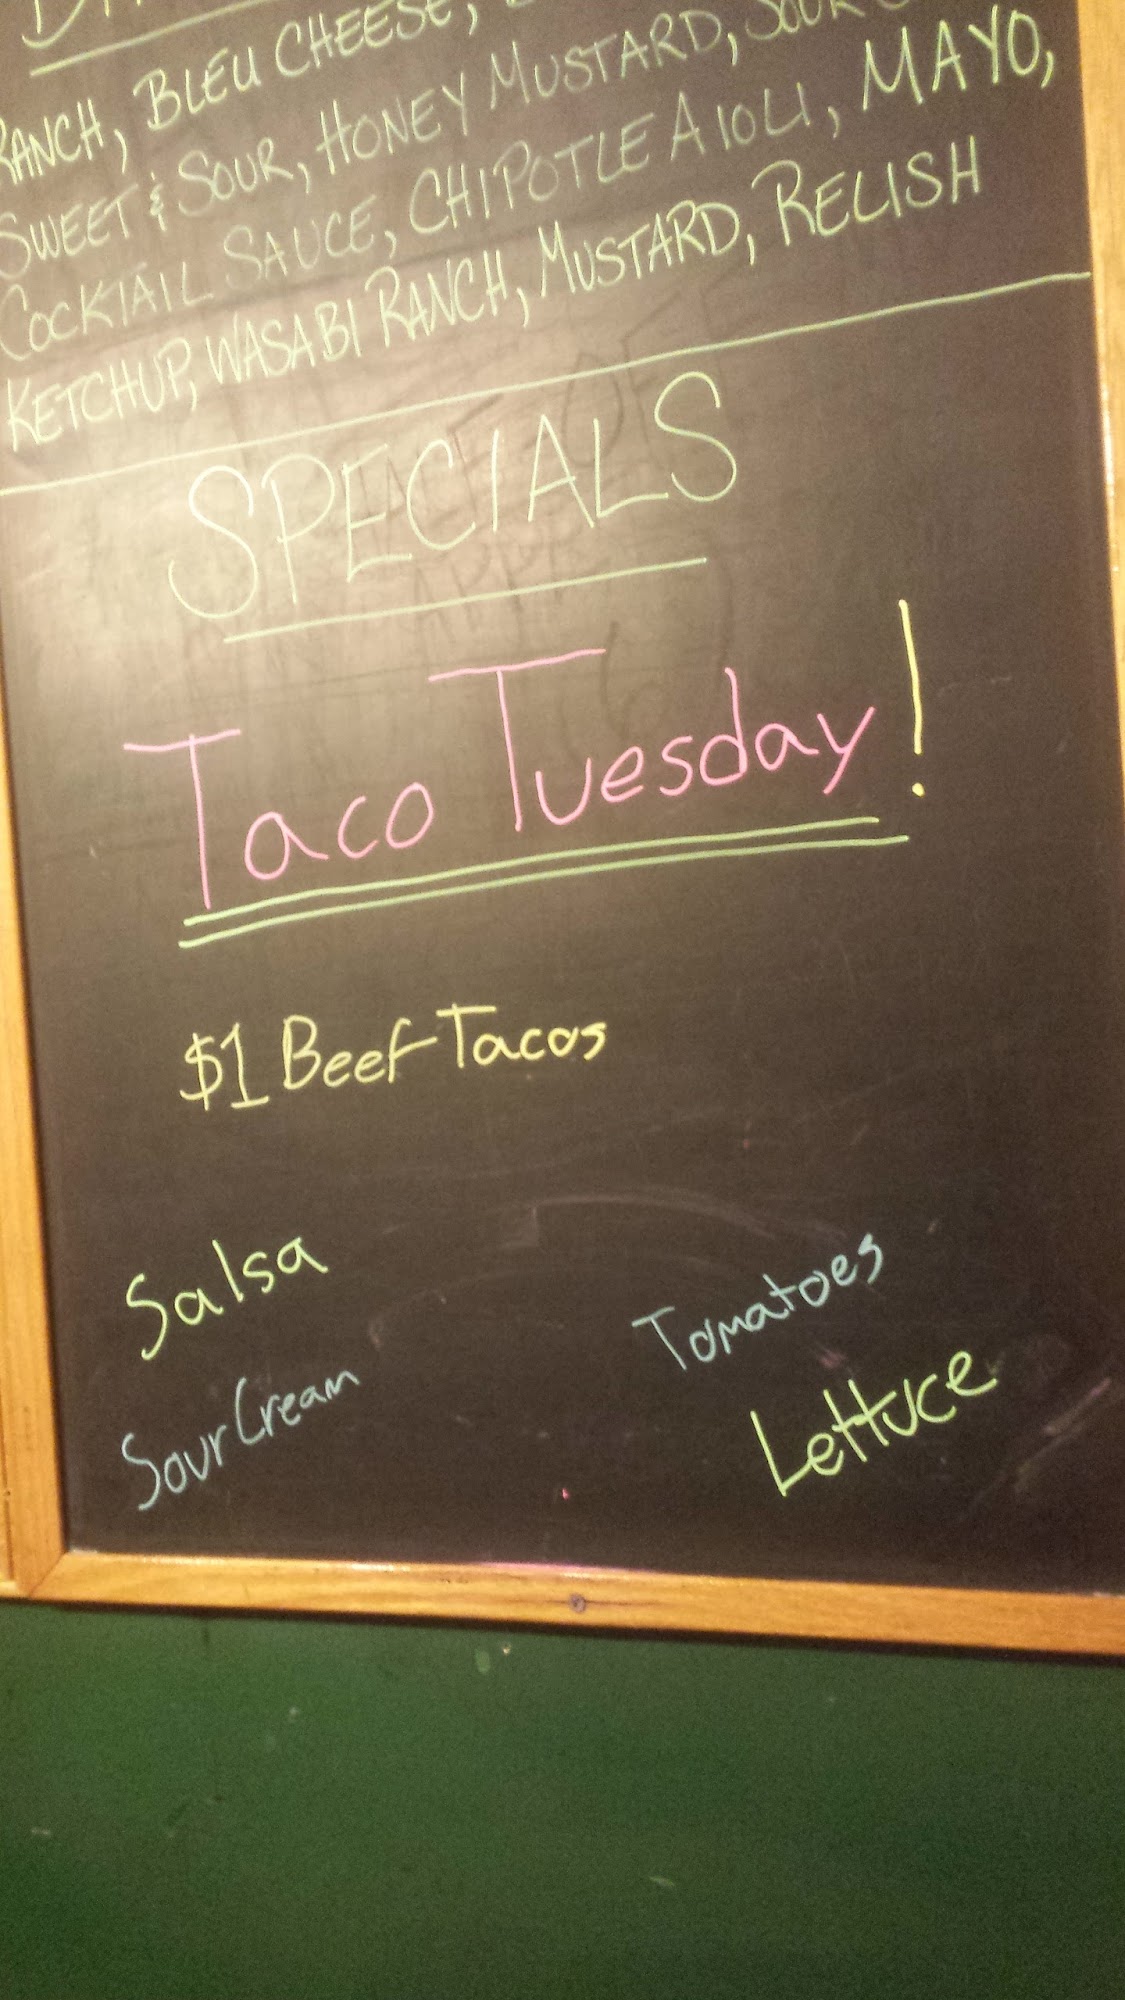 RANCH, BLEU CHEESE,
SWEET & SOUR, HONEY MUSTARD, SOUR
COCKTAIL SAUCE, CHIPOTLE AIOLI, MAYO,
KETCHUP, WASABI RANCH, MUSTARD, RELISH
SPECIALS
Taco Tuesday!
$1 Beef Tacos
Salsa
Tomatoes
Sour Cream
Lettuce